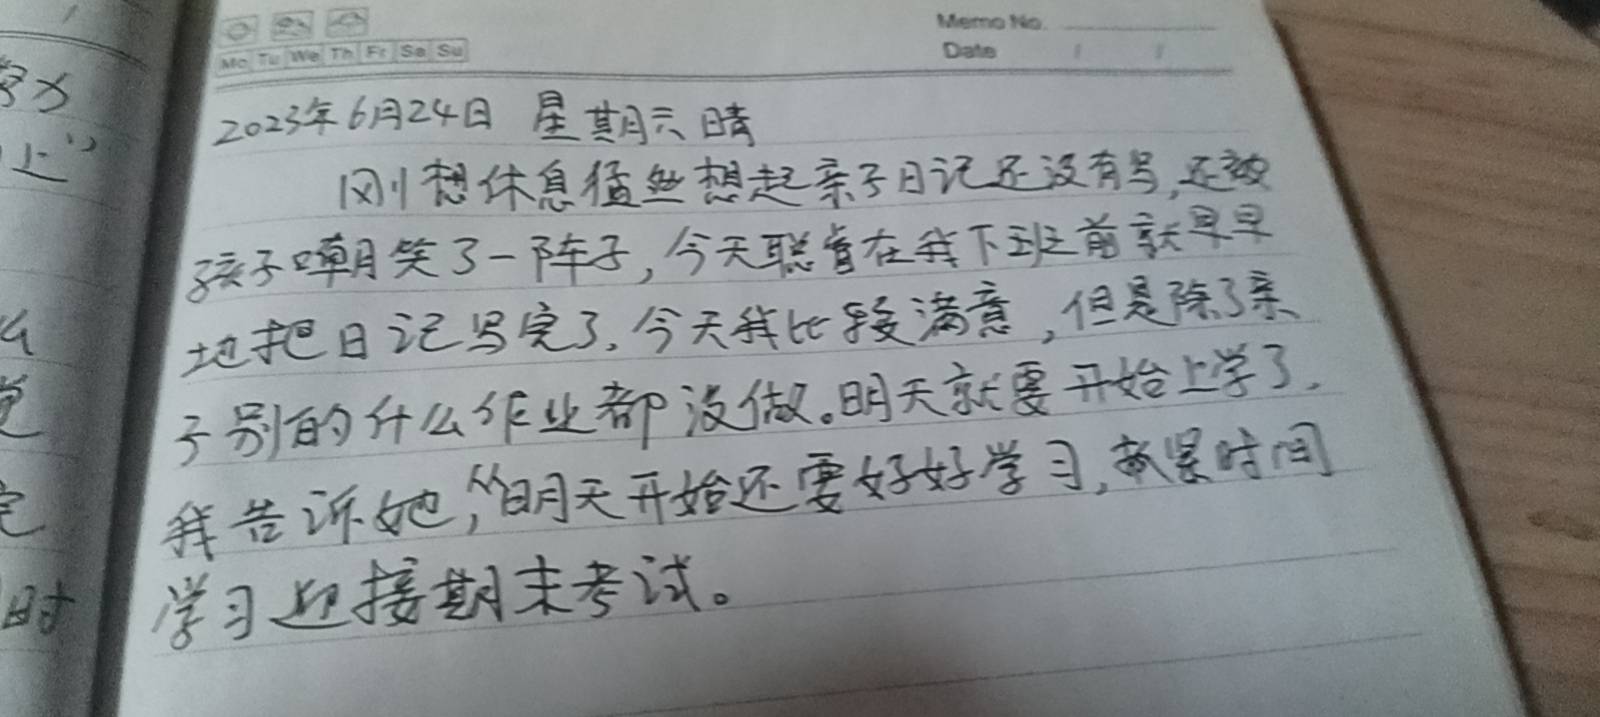 Memo No.
Mo Tu We Th Fr Sa Su
Date / /
2023年6月24日 星期六 晴
刚想休息猛然想起亲子日记还没有写,还被
孩子嘲笑了一阵子,今天聪睿在我下班前就早早
地把日记写完了,今天我比较满意,但是除了亲
子别的什么作业都没做。明天就要开始上学了,
我告诉她,“明天开始还要好好学习,抓紧时间
学习迎接期末考试。
上”
时